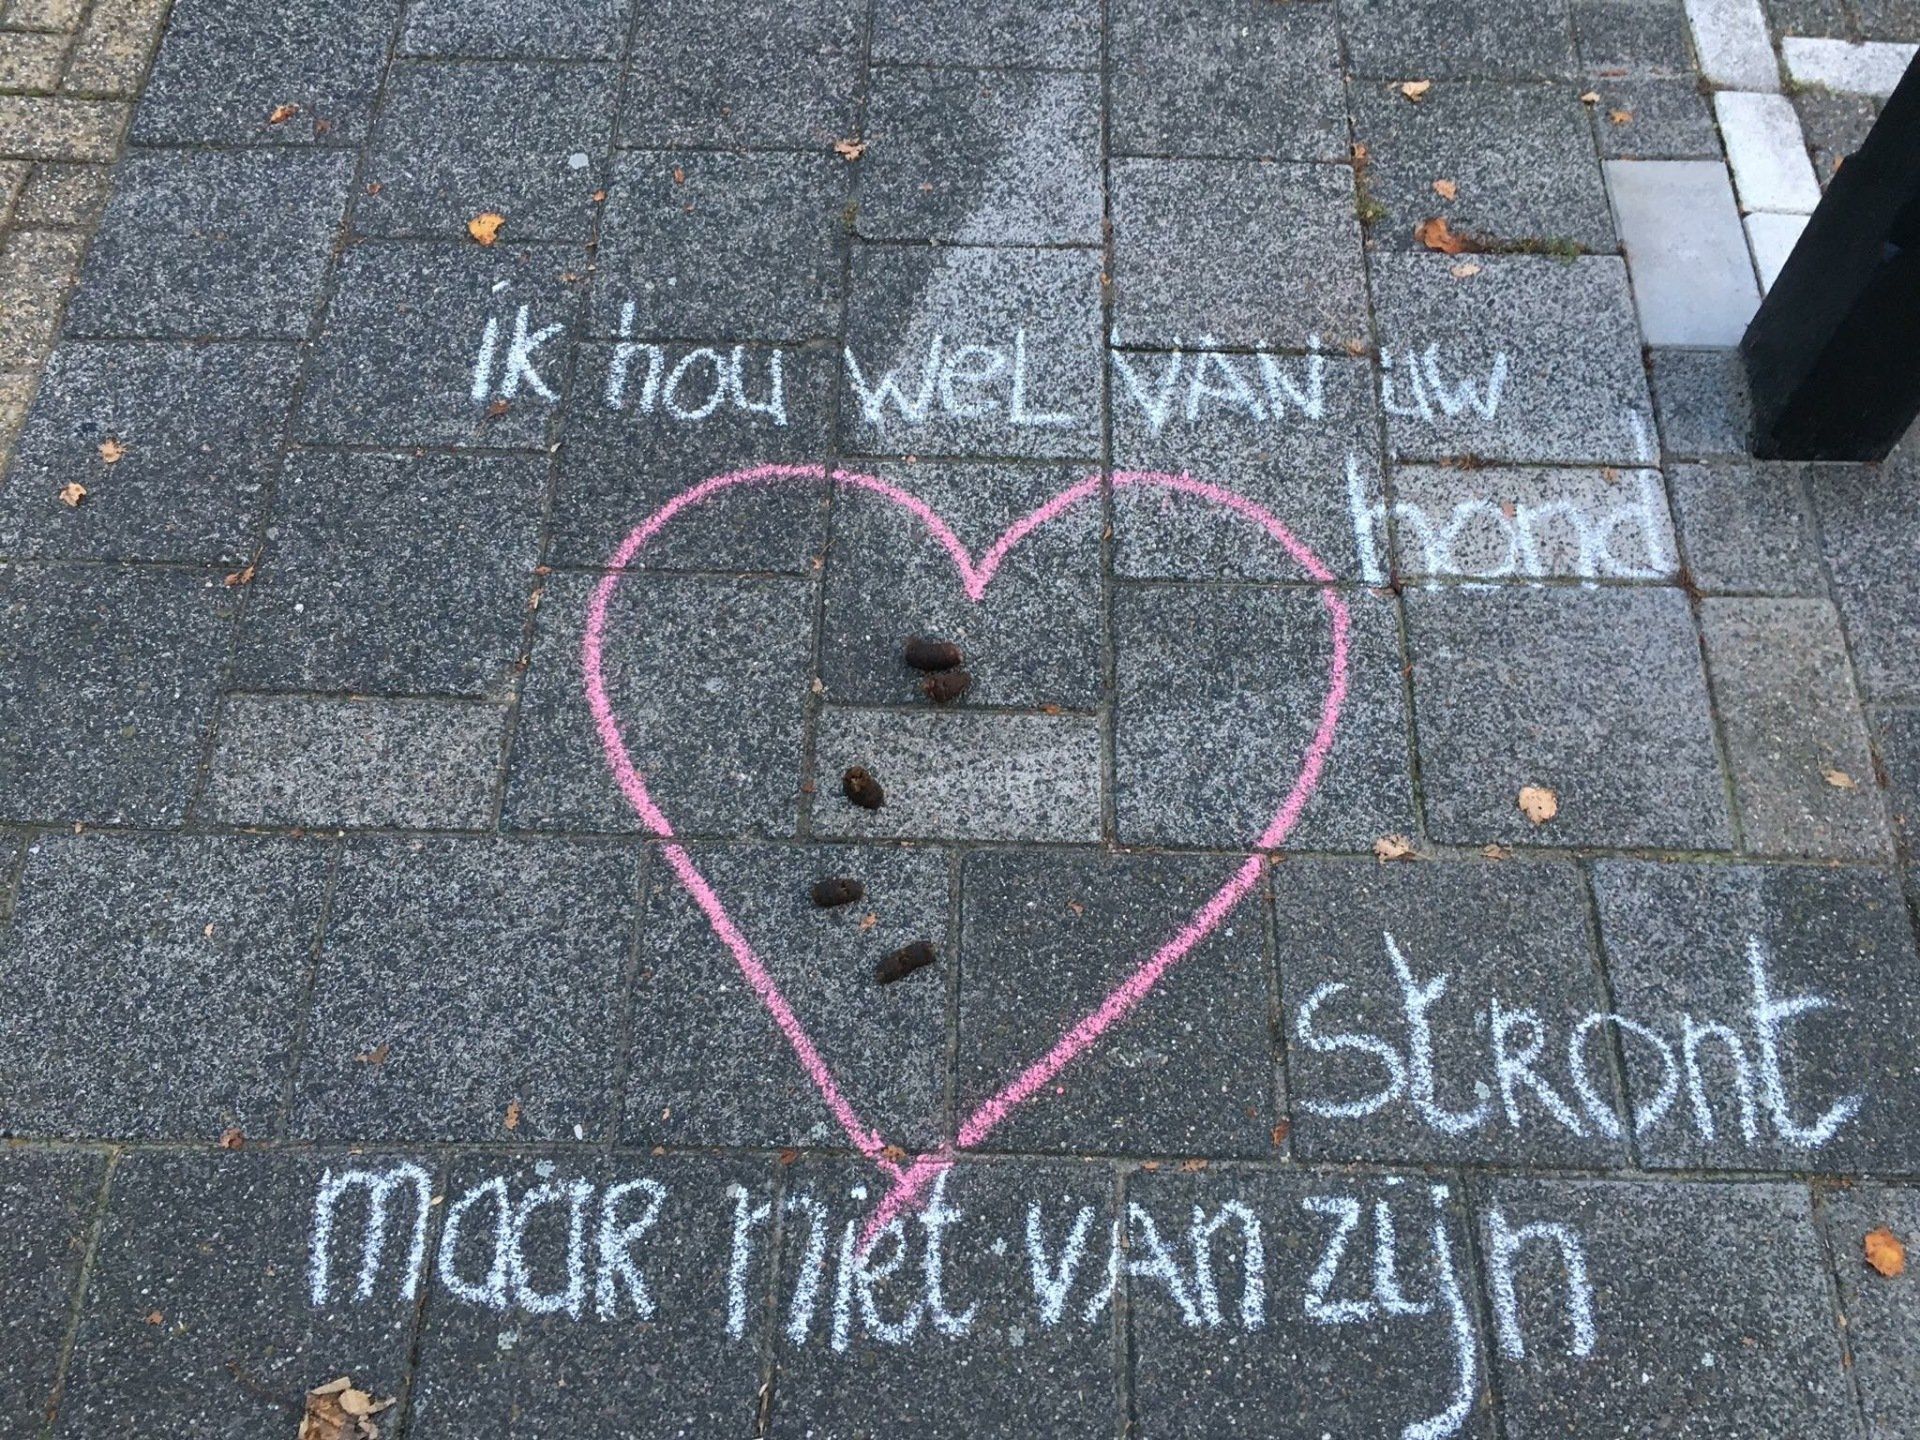 ik hou wel van uw
hond
maar niet van zijn
stront